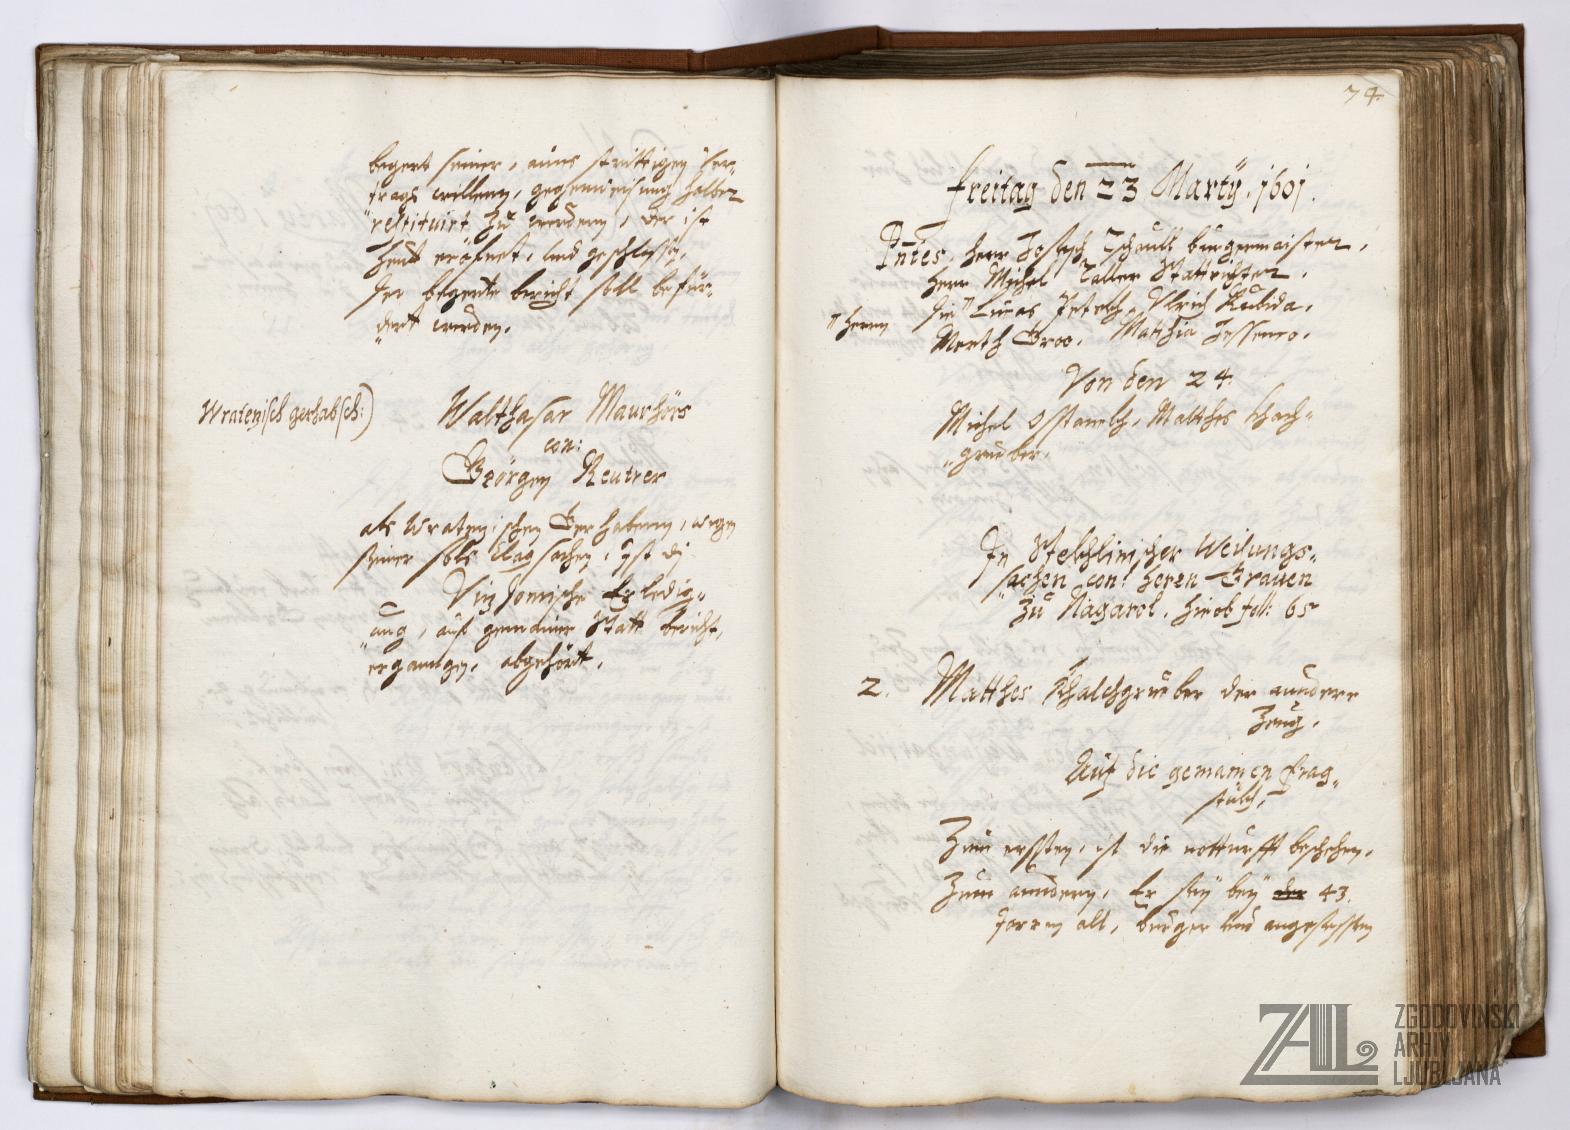 begert seiner, aines strittigen Ver-
trags willenn, gegenweisung halber
restituirt zu werdenn, der ist
heut eröfnet, und geschlossen,
Der begerte bericht soll befür-
"dert werden.
Wratenisch gerhabsch:)
Walthasar Maurhörs
con:
Geörgen Reutrer
als Wratenischen Gerhabenn, wegen
seiner clag sachen, Ist di
Vizdomische Erledig-
"ung, auf gemainer Statt bericht,
"ergangen, abgehört.
74.
Freitag den 23 Martÿ. 1601.
Pntes. Herr Joseph Tschaull burgermaister,
Herr Michel Taller Stattrichter.
"herrn
die" Lucas Ulrich Kubida.
Merth Groo. Mathia Jessenco.
Von den 24.
Michel Matthes Khoch-
"grueber.
In Stethlinischer Weisungs-
"sachen con: Heren Grauen
zu Nagarol. hieob foll: 65
2. Matthes Khalchgrueber der annderr
Zeug.
Auf die gemainen Frag-
stükh,
Zum erssten, ist die notturfft beschehen.
Zum anndern, Er seÿ beÿ der 43.
Jarren alt, burger und angesessen
ZAL
ZGODOVINSKI
ARHIV
LJUBLJANA